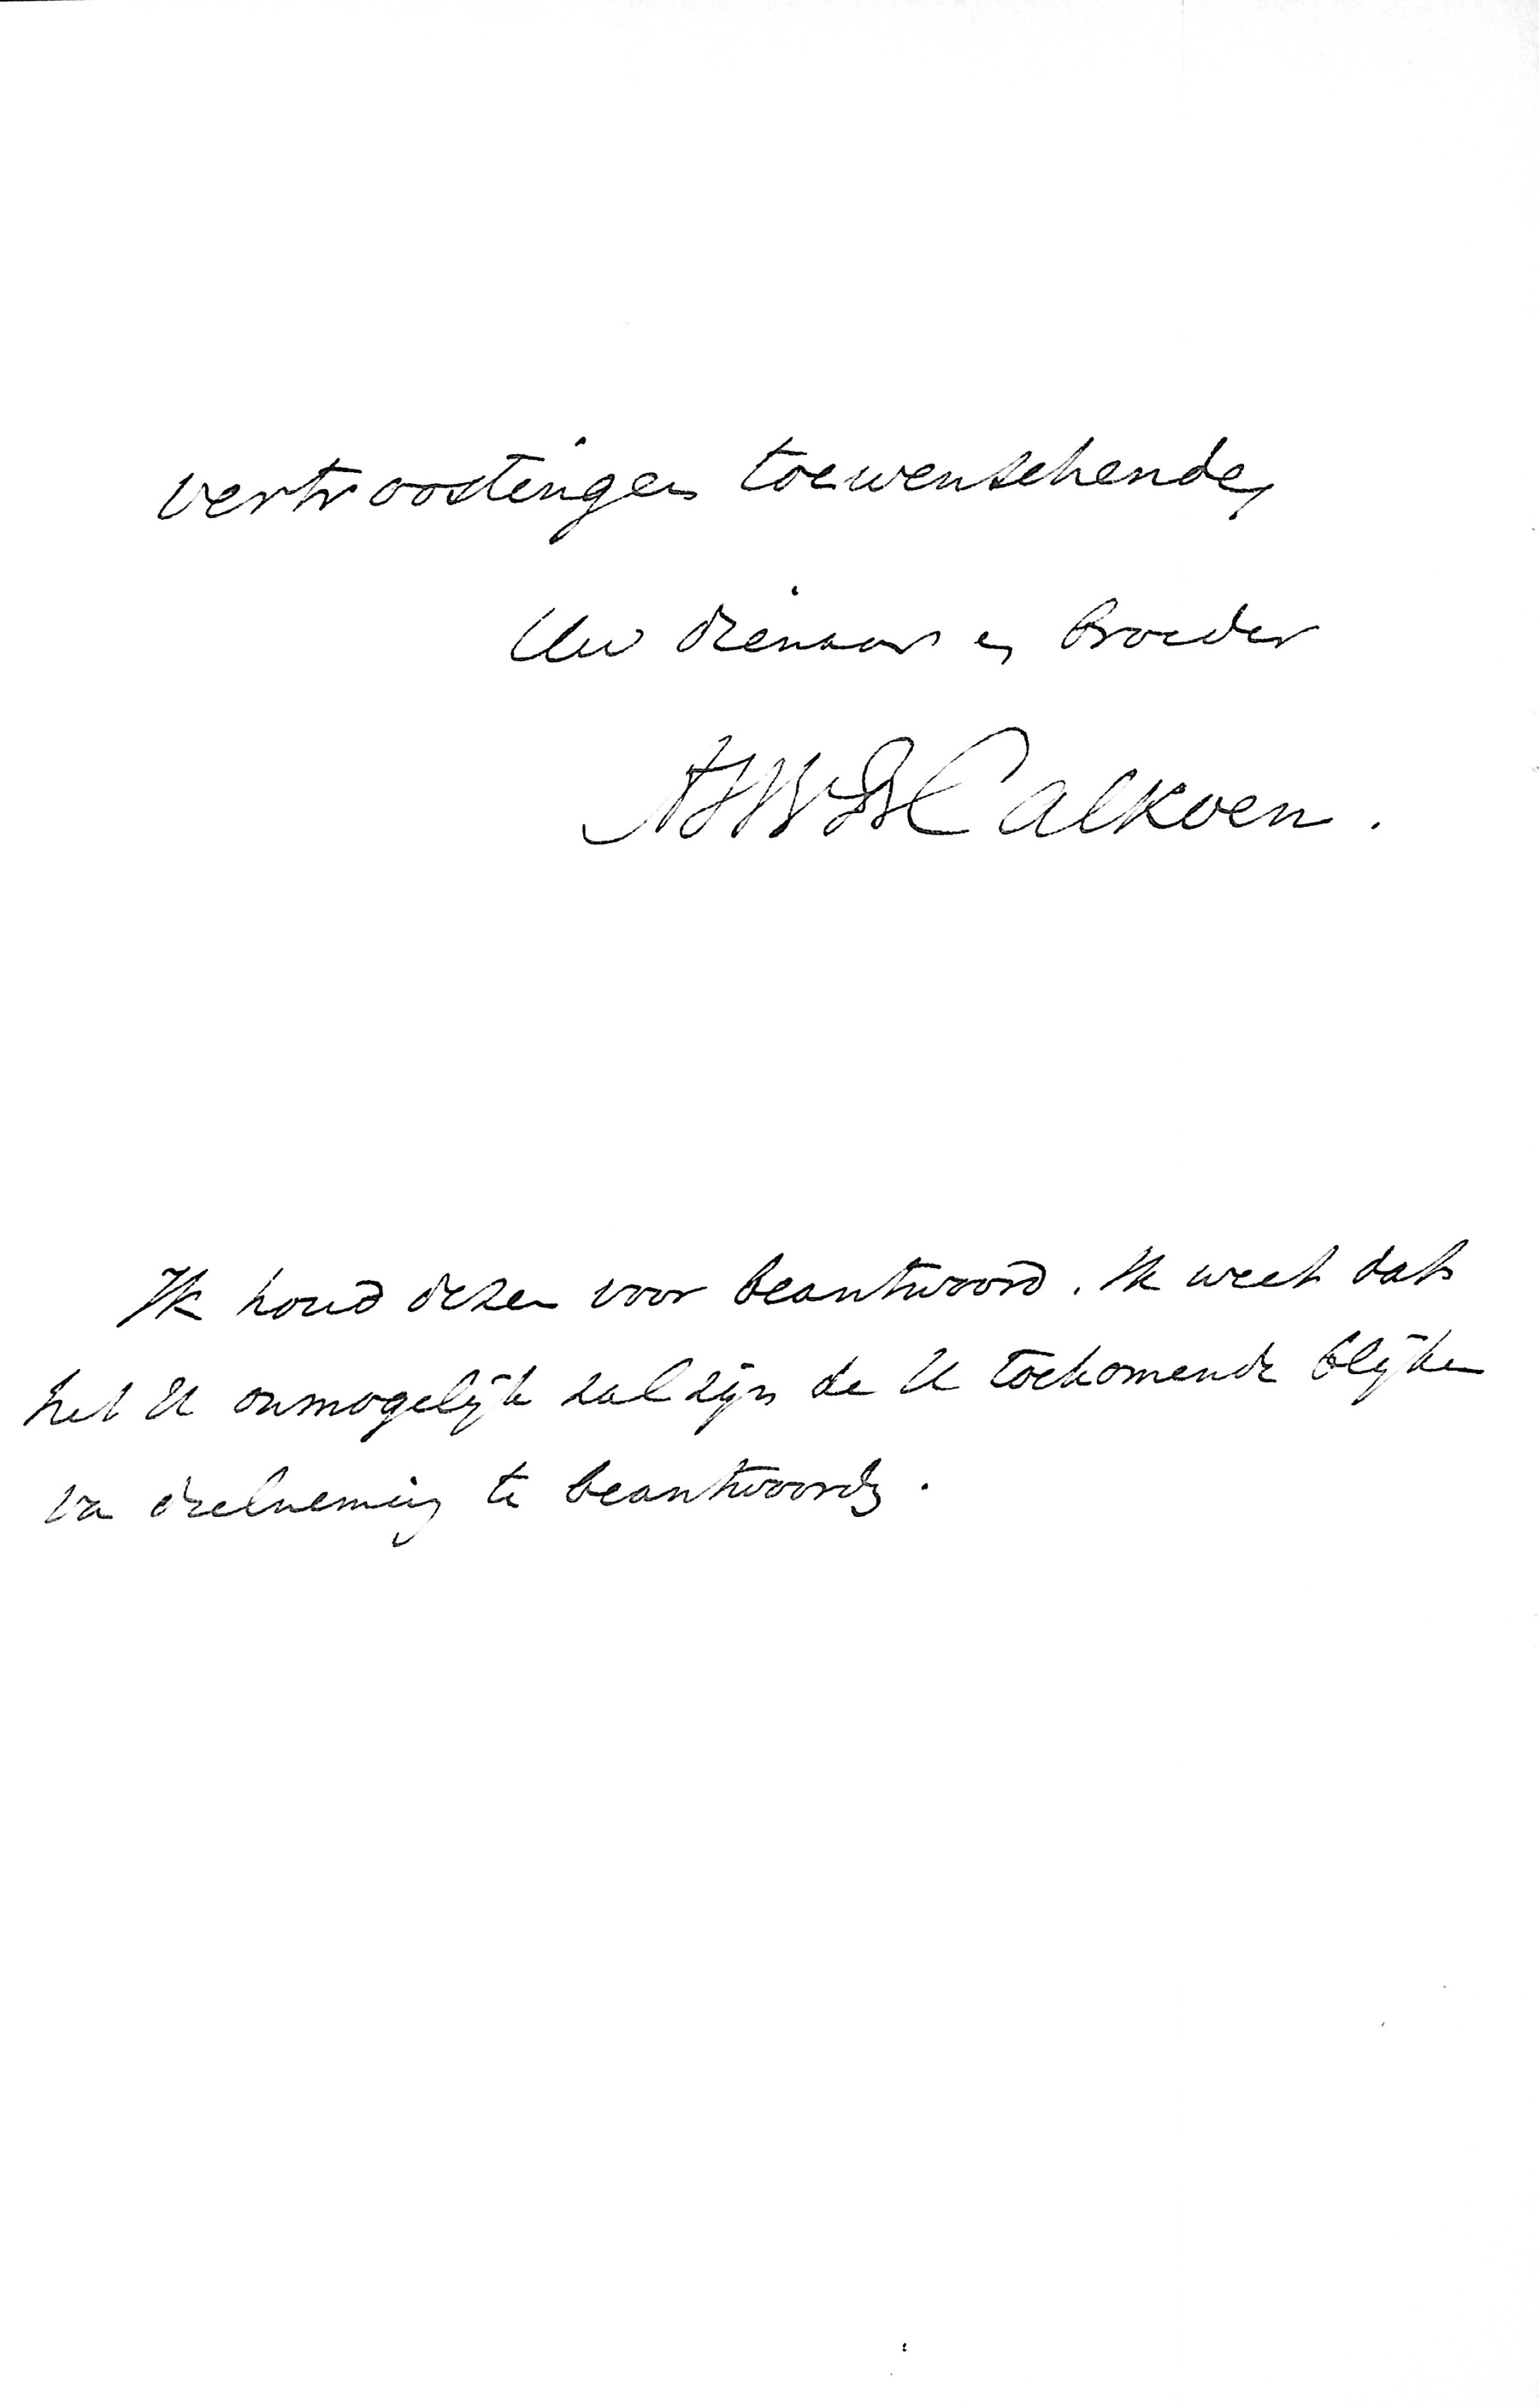 vertroostingen toewenschende,
Uw dienaar en broeder
AHWvB Calkoen.
Ik houd dezen voor beantwoord. Ik weet dat
het U onmogelijk zal zijn de U toekomende blijken
van deelneming te beantwoorden.